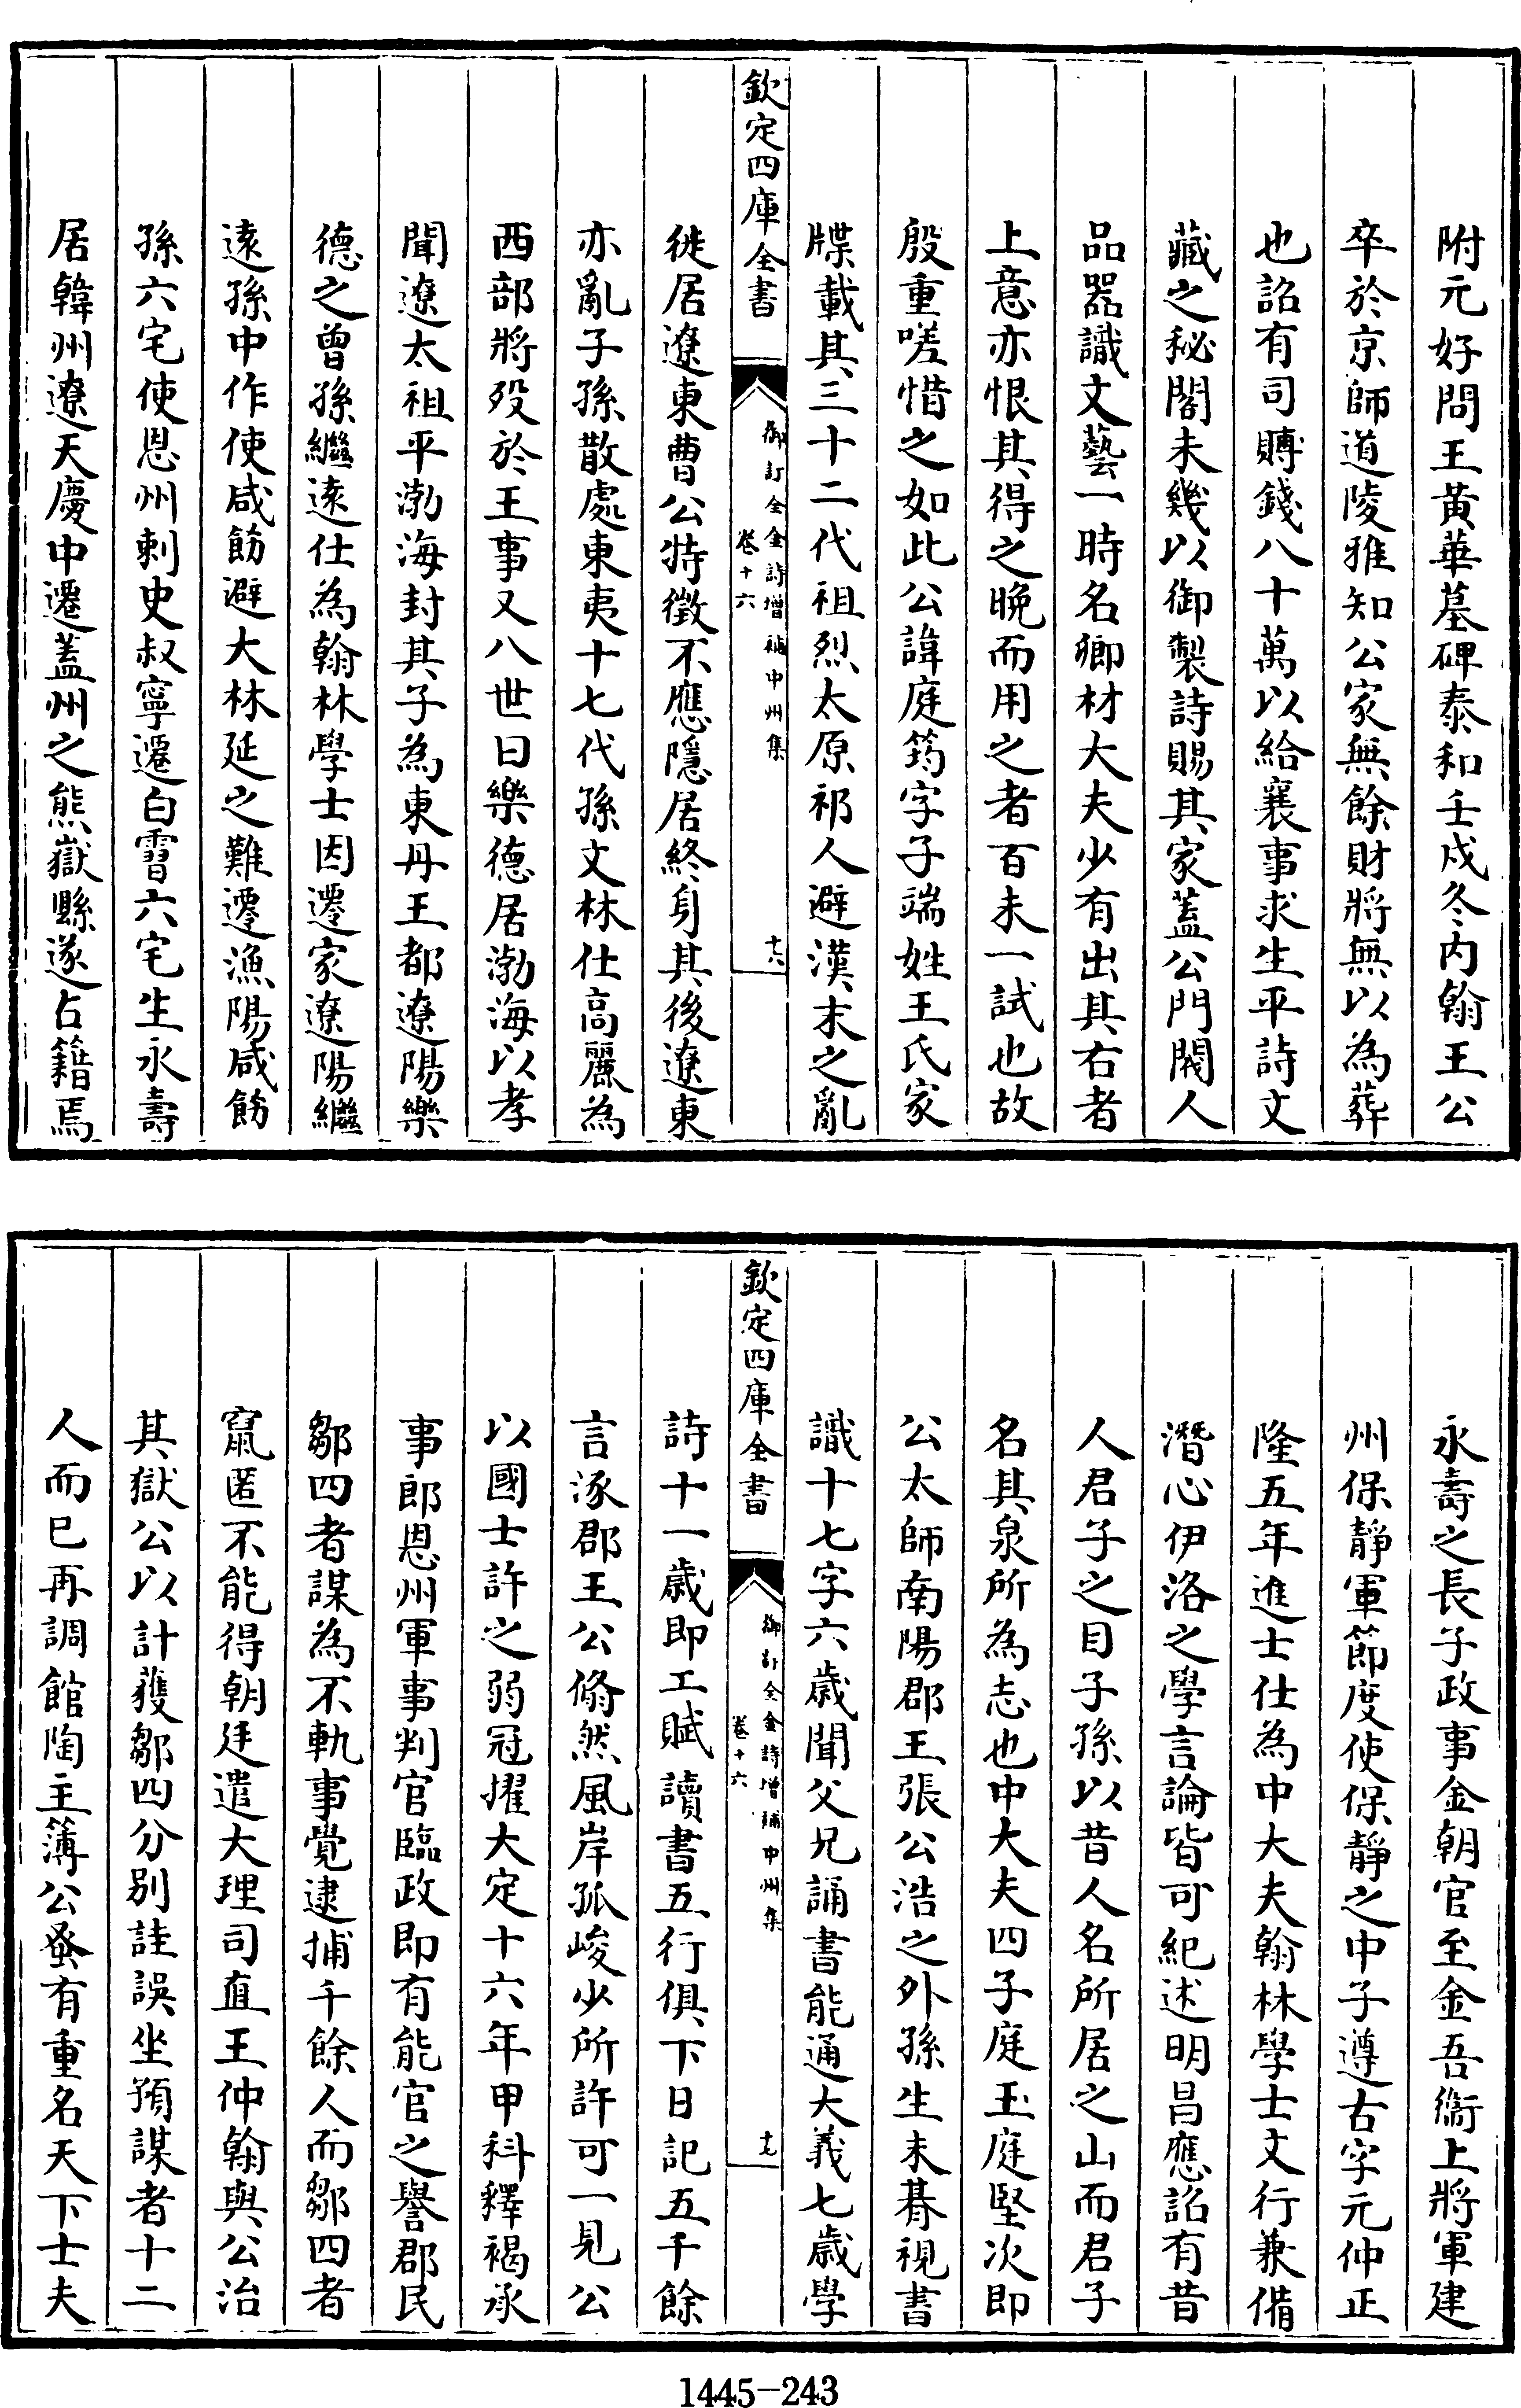 附元好問王黃華墓碑泰和壬戌冬内翰王公
卒於京師道陵雅知公家無餘財將無以為葬
也詔有司賻錢八十萬以給襄事求生平詩文
藏之秘閣未幾以御製詩賜其家蓋公門閥人
品器識文藝一時名卿材大夫少有出其右者
上意亦恨其得之晚而用之者百未一試也故
殷重嗟惜之如此公諱庭筠字子端姓王氏家
牒載其三十二代祖烈太原祁人避漢末之亂
欽定四庫全書
御訂全金詩增補中州集
卷十六
十八
徙居遼東曹公特徵不應隱居終身其後遼東
亦亂子孫散處東夷十七代孫文林仕高麗為
西部將歿於王事又八世曰樂德居渤海以孝
聞遼太祖平渤海封其子為東丹王都遼陽樂
德之曾孫繼遠仕為翰林學士因遷家遼陽繼
遠孫中作使咸飭避大林延之難遷漁陽咸飭
孫六宅使恩州刺史叔寧遷白霫六宅生永壽
居韓州遼天慶中遷蓋州之熊嶽縣遂占籍焉
永壽之長子政事金朝官至金吾衞上將軍建
州保靜軍節度使保靜之中子遵古字元仲正
隆五年進士仕為中大夫翰林學士文行兼備
潛心伊洛之學言論皆可紀述明昌應詔有昔
人君子之目子孫以昔人名所居之山而君子
名其泉所為志也中大夫四子庭玉庭堅次即
公太師南陽郡王張公浩之外孫生未朞視書
識十七字六歲聞父兄誦書能通大義七歲學
欽定四庫全書
御訂全金詩增補中州集
卷十六
十九
詩十一歲即工賦讀書五行俱下日記五千餘
言涿郡王公翛然風岸孤峻少所許可一見公
以國士許之弱冠擢大定十六年甲科釋褐承
事郎恩州軍事判官臨政即有能官之譽郡民
鄒四者謀為不軌事覺逮捕千餘人而鄒四者
竄匿不能得朝廷遣大理司直王仲翰與公治
其獄公以計獲鄒四分別詿誤坐預謀者十二
人而已再調館陶主簿公蚤有重名天下士夫
1445-243